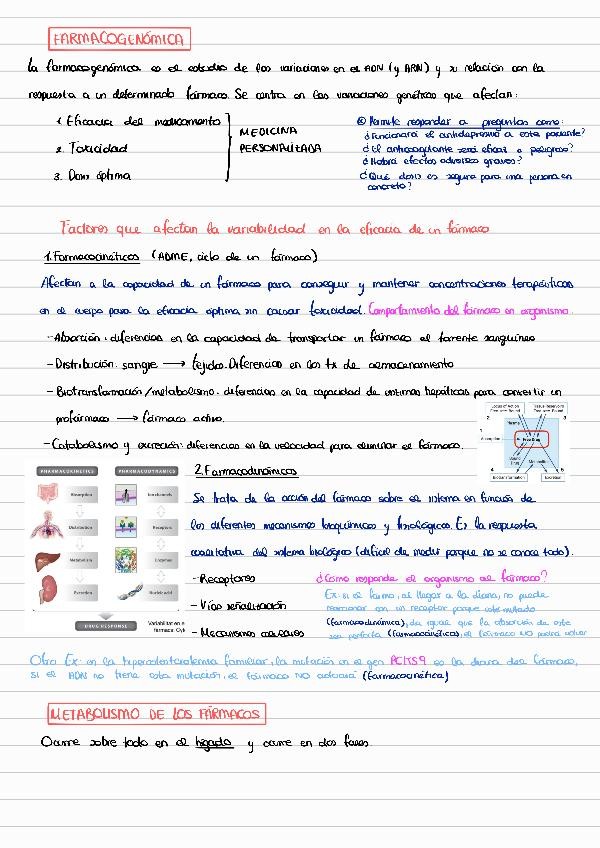 FARMACOGENÓMICA
La farmacogenómica es el estudio de las variaciones en el ADN (y ARN) y su relación con la
respuesta a un determinado fármaco. Se centra en las variaciones genéticas que afectan:
1. Eficacia del medicamento
2. Toxicidad
3. Dosis óptima
MEDICINA
PERSONALIZADA
Permite responder a preguntas como:
¿Funcionará el antidepresivo a este paciente?
¿El anticoagulante será eficaz o peligroso?
¿Habrá efectos adversos graves?
¿Qué dosis es segura para una persona en
concreto?
Factores que afectan la variabilidad en la eficacia de un fármaco
1. Farmacocinéticos (ADME, ciclo de un fármaco)
Afectan a la capacidad de un fármaco para conseguir y mantener concentraciones terapéuticas
en el cuerpo para la eficacia óptima sin causar toxicidad. Comportamiento del fármaco en organismo.
- Absorción: diferencias en la capacidad de transportar un fármaco al torrente sanguíneo
- Distribución. sangre → tejidos. Diferencias en los tx de almacenamiento
- Biotransformación/metabolismo. diferencias en la capacidad de enzimas hepáticas para convertir un
profármaco → fármaco activo.
- Catabolismo y excreción: diferencias en la velocidad para eliminar el fármaco.
Locus of Action
Tissue Reservoirs
Plasma
Absorption
Free Drug
Bound Drug
Metabolites
Biotransformation
Excretion
PHARMACOKINETICS
PHARMACODYNAMICS
Absorption
Ion channels
Distribution
Receptors
Metabolism
Enzymes
Excretion
Nucleic acid
DRUG RESPONSE
Variabilitat en e
fàrmaca: Cyt
2. Farmacodinámicos
Se trata de la acción del fármaco sobre el sistema en función de
los diferentes mecanismos bioquímicos y fisiológicos. Es la respuesta
cualitativa del sistema biológico (difícil de medir porque no se conoce todo).
- Receptores
- Vías señalización
- Mecanismos celulares
¿Cómo responde el organismo al fármaco?
Ex: si el farmo, al llegar a la diana, no puede
reaccionar con un receptor porque está mutado
(farmacodinámica), da igual que la absorción de este
sea perfecta (farmacocinéticas), el fármaco NO podrá
Otro Ex: en la hipercolesterolemia familiar, la mutación en el gen PCKS9 es la diana del fármaco,
si el ADN no tiene esta mutación, el fármaco NO actuará (farmacocinética)
METABOLISMO DE LOS FÁRMACOS
Ocurre sobre todo en el hígado y ocurre en dos fases.